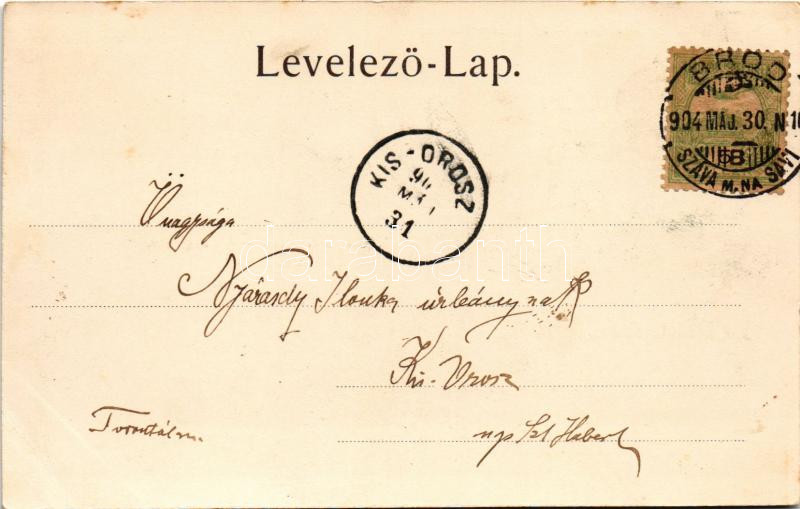 Levelező-Lap.
BROD
904 MÁJ. 30. N 10
SZÁVA M. NA SAVI
KIS-OROSZ
MÁJ
31
Őnagysága
Nyárasdy Ilonka úrleánynak
Kis-Orosz
up Szt Hubert
Torontál m.
darabanth